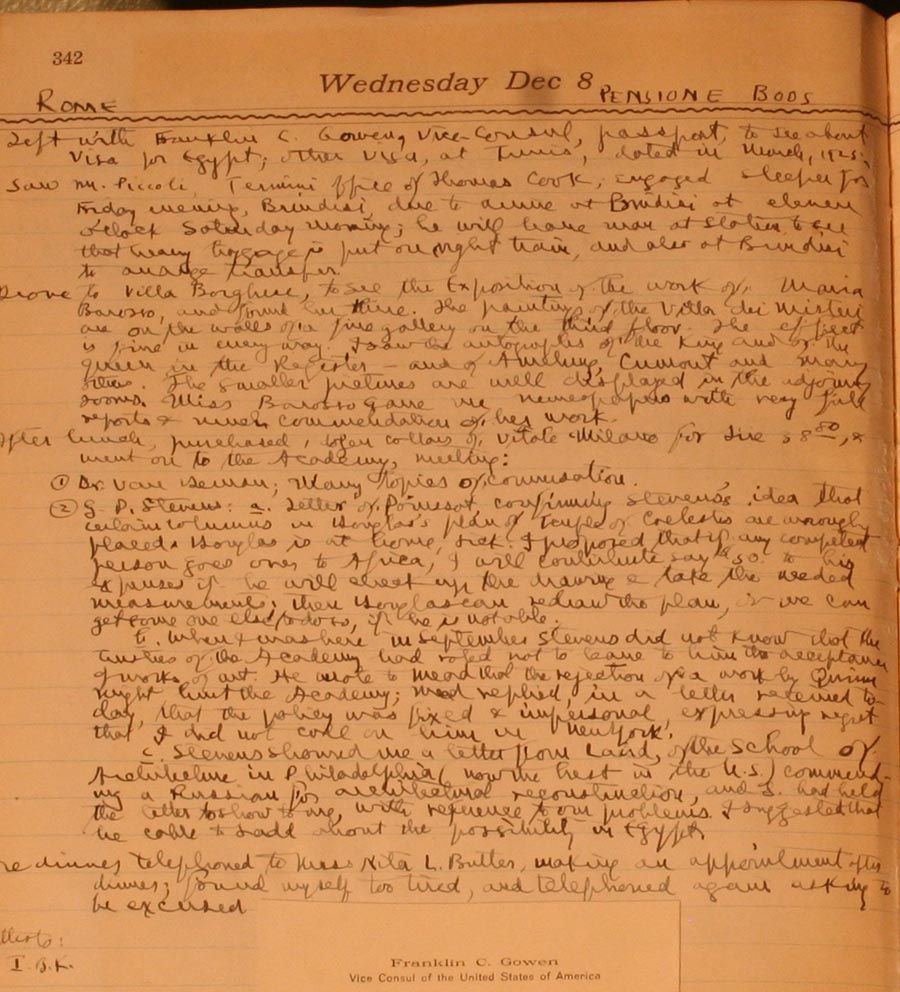 342
Wednesday Dec 8
ROME PENSIONE BOOS
Left with Franklin C. Gowen, Vice-Consul, passport, to see about
Visa for Egypt; other visa, at Tunis, dated in March, 1925.
Saw Mr. Piccoli, Termini office of Thomas Cook, engaged sleeper for
Friday evening, Brindisi due to arrive at Brindisi at eleven
o'clock Saturday morning; he will have man at station to see
that heavy luggage is put on right train, and also at Brindisi
to arrange transfer.
Drove to Villa Borghese, to see the Exposition of the work of Maria
Barosso, and found her there. The paintings of the Villa dei Misteri
are on the walls of a fine gallery on the third floor. The effect
is fine in every way. I saw the autographs of the King and of the
Queen in the Register – and of Amelung, Cumont and many
others. The smaller pictures are well displayed in the adjoining
rooms. Miss Barosso gave me newspapers with very full
reports & much commendation of her work.
After lunch, purchased collars of Vitale Milano for lire 58 80, &
went on to the Academy, meeting:
① Dr. Van Deman; Many topics of conversation.
② G. P. Stevens: a. Letter of Poinssot, confirming Stevens's idea that
certain columns in Douglas's plan of Temple of Caelestis are wrongly
placed. Douglas is at home, sick. I proposed that if any competent
person goes over to Africa, I will contribute say $50. to his
expenses if he will check up the drawing & take the needed
measurements; then Douglas can redraw the plan, or we can
get some one else to do so, if he is not able.
b. When I was here in September Stevens did not know that the
trustees of the Academy had voted not to leave to him the acceptance
of works of art. He wrote to Mead that the rejection of a work by
might hurt the Academy; Mead replied, in a letter received to-
day, that the policy was fixed & impersonal, expressing regret
that I did not call on him in New York.
c. Stevens showed me a letter from Laird, of the School of
Architecture in Philadelphia (now the best in the U.S.) commend-
ing a Russian for architectural reconstruction, and S. had held
the letter to show to me, with reference to our problems. I suggested that
he cable to Ladd about the possibility in Egypt.
dinner telephoned to Miss Nita L. Butler, making an appointment after
dinner; found myself too tired, and telephoned again asking to
be excused
I.B.K.
Franklin C. Gowen
Vice Consul of the United States of America